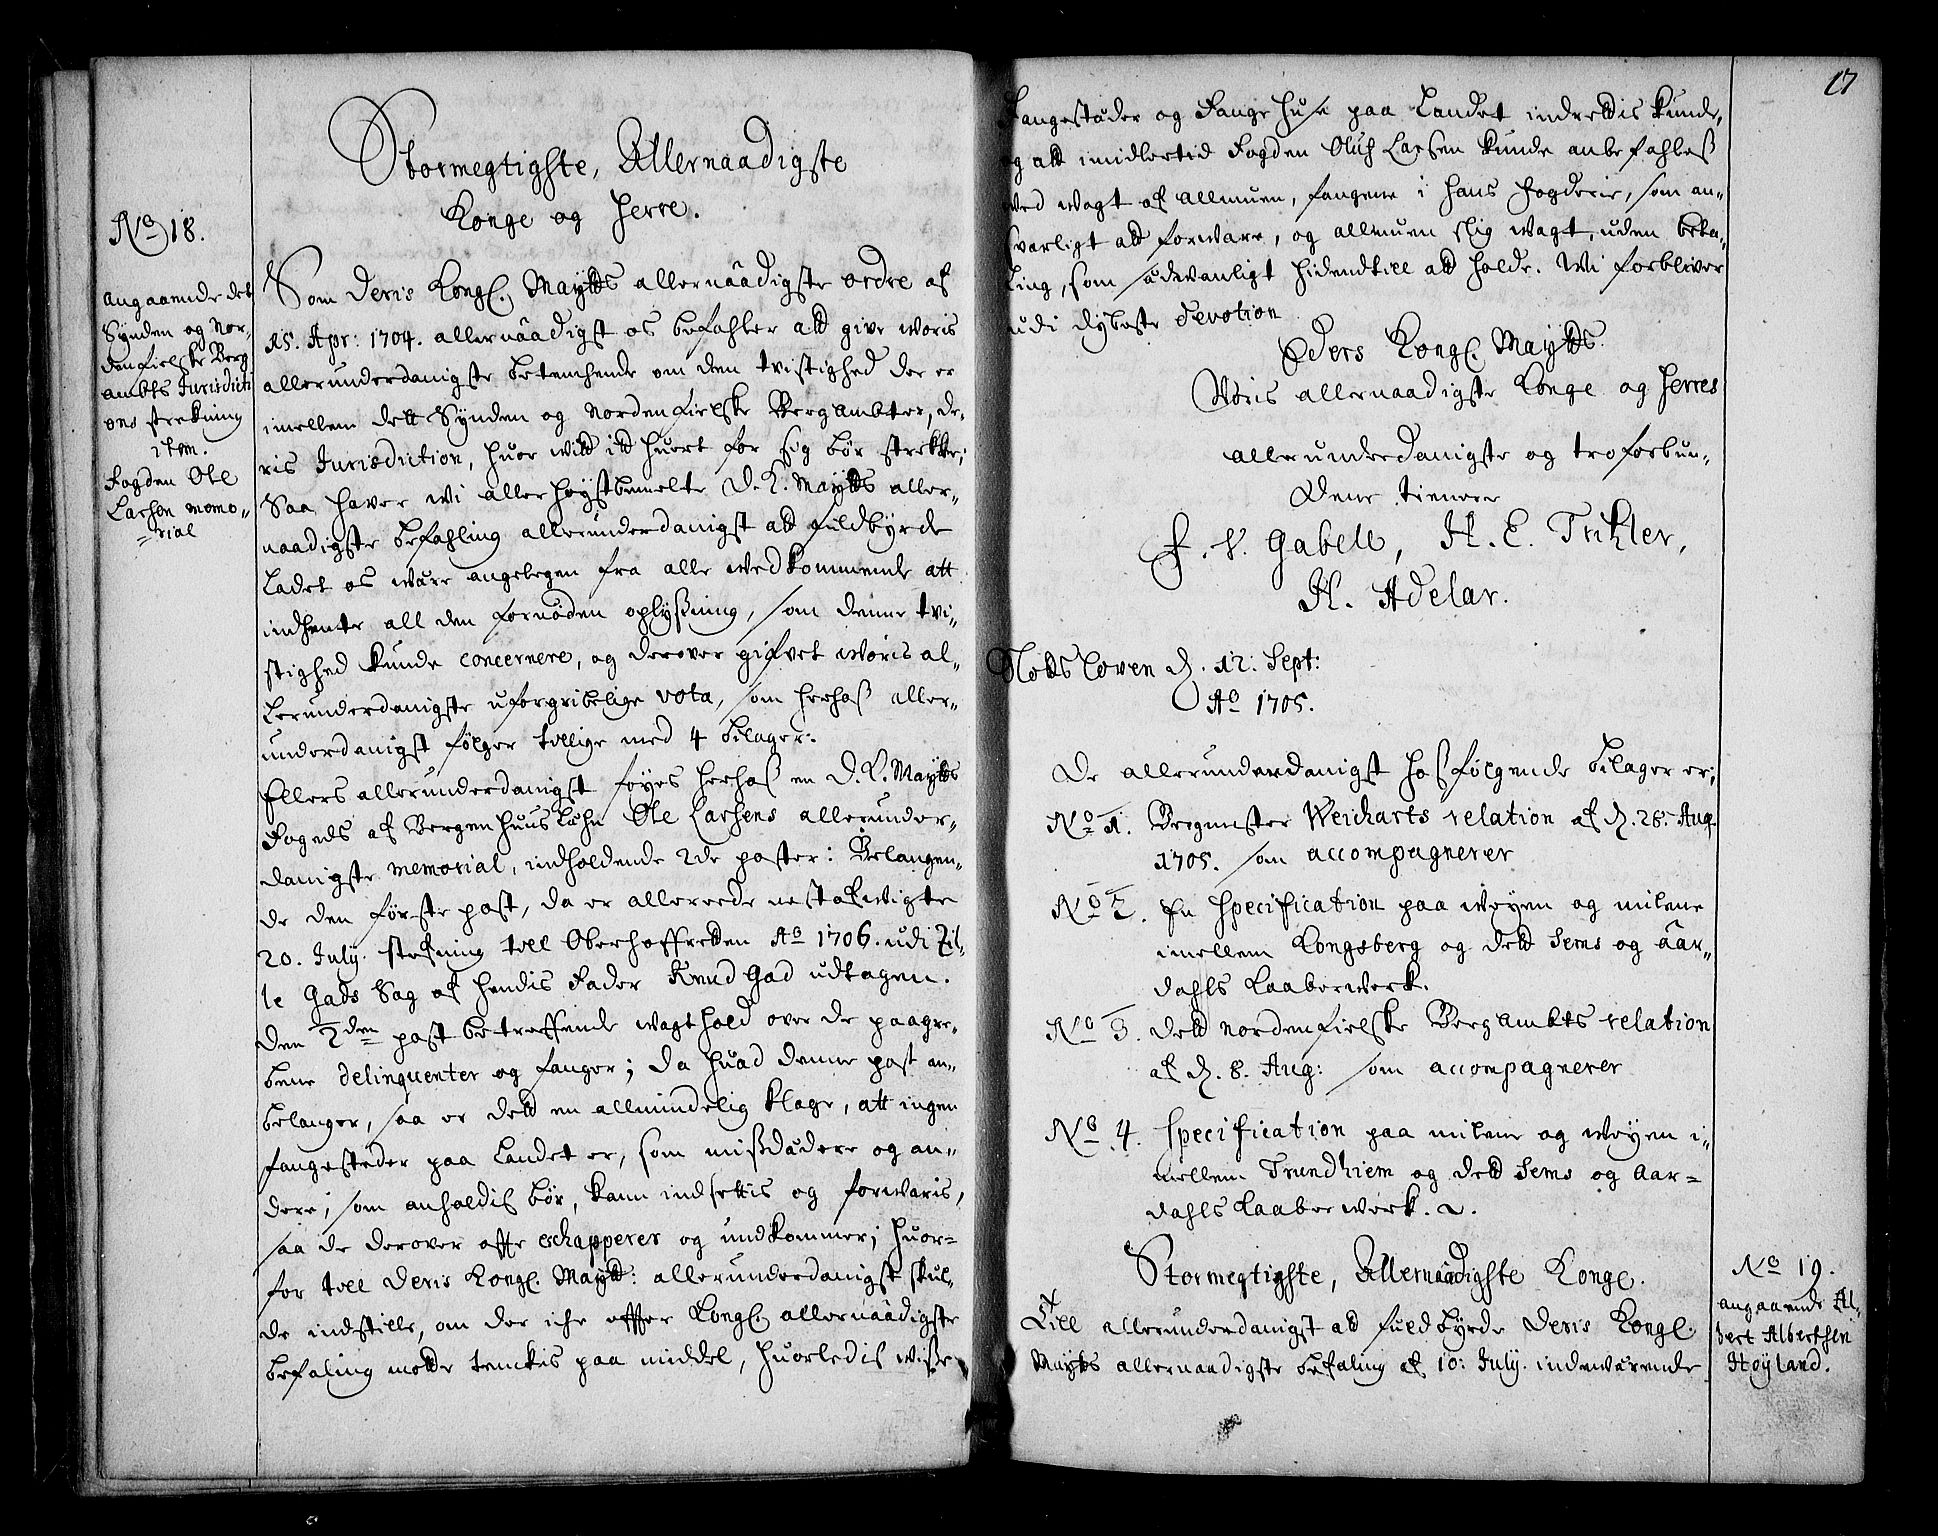 Stormegtigste, Allernaadigste
Konge og Herre.
No 18.
angaaende det
Synden og Nor-
denfielske Berg
ambts Jurisdicti
ons strekning
item.
Fogden Ole
Larsen memo-
rial
Som Deris Kongl. Maytts allernaadigste ordre af
15. Apr: 1704. allernaadigst os befahler att give woris
allerunderdanigste betenchende om den tvistighed der er
imellem dett Synden og Nordenfielske Bergambter, de-
ris Jurisdiction, huor vit id huert for sig bør strekke;
Saa haver wi allerhøystbemelte D. K. Maytts aller-
naadigste befahling allerunderdanigst att fuldbyrde
ladet os være angelegen fra alle vedkommende att
indhente all den fornøden oplysning, som denne tvi-
stighed kunde concernere, og derover gifvet woris al-
lerunderdanigste uforgribelige vota, som herhos aller-
underdanigst følger tillige med 4 bilager.
Ellers allerunderdanigst føyes herhos en D. K. Maytts
Fogeds af Bergenhuus Lehn Ole Larsens allerunder-
danigste memorial, indholdende 2de poster: Belangen-
de den første post, da er allereede nestafwigte
20. July. stefning till Oberhoffretten Ao 1706. udi Zil-
le Gads Sag af hendis Fader Knud Gad udtagen.
Den 2den post betreffende wagthold over de paagre-
bene delinquenter og fanger; da huad denne post an-
belanger, saa er dett en allmindelig klage, att ingen
fangesteder paa Landet er, som missdædere og an-
dere, som anholdis bør, kann indsettis og forwaris,
saa de derover ofte echapperer og undkommer; huor-
for till Deris Kongl. Maytt: allerunderdanigst skul-
de indstille, om der iche efter Kongl. allernaadigste
befaling motte tenckis paa middel, huorledis wisse
17
Fangestæder og Fangehuse paa Landet indrettis kunde,
og att imidlertid Fogden Oluf Larsen kunde anbefahles
ved wagt af allmuen, fangene i hans Fogderie, som an-
svarligt att forware, og allmuen slig wagt, uden beta-
ling, som sædvanligt hidendtill att holde. Wi forbliver
udi dybeste devotion
Eders Kongl. Maytts.
Voris allernaadigste Konge og Herres
allerunderdanigste og troforbun-
dene tienere
F. V. Gabell, H. E. Tritzler,
H. Adelar.
Slotsloven d. 12. Sept:
Ao 1705.
De allerunderdanigst hosfølgende bilager er;
No 1. Bergmester Weicharts relation af d. 28. Aug.
1705. som accompagnerer
No 2. En specification paa weyen og milene
imellem Kongsberg og dett Sems og Aar-
dahls Kaaberwerk.
No 3. Dett nordenfielske Bergambts relation
af d. 8. Aug: som accompagnerer
No 4. Specification paa milene og weyen i-
mellem Trundhiem og dett Sems og Aar-
dahls Kaaberwerk.
Stormegtigste, Allernaadigste Konge.
No 19.
angaaende Al-
bert Albertsen
Høyland.
Till allerunderdanigst att fuldbyrde Deris Kongl.
Maytts allernaadigste befaling af 10: July. indeværende